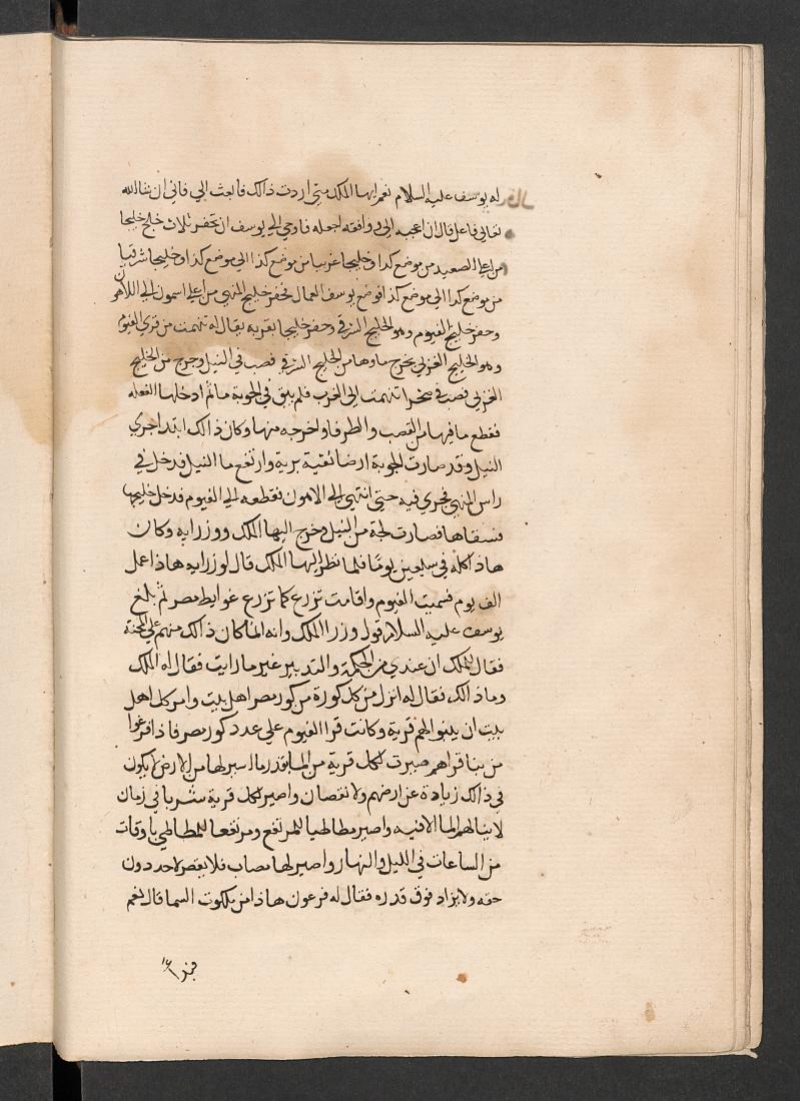 قال له يوسف عليه السلام نعم ايها الملك متى اردت ذالك فابعث الي فاني ان شا الله
تعالى فاعل قال ان اعجبه الي ووافقه اجعله فاوحي الي يوسف ان تحفر ثلاث خلج خليجا
من اعلا الصعيد من موضع كدا وخليجا غربيا من موضع كذا الى موضع كدا وخليجا شرقيا
من موضع كدا الى موضع كذا فوضع يوسف العمال فحفر خليج المنهي من اعلي اشمون الي اللاهون
وحفر خليج الفيوم وهو الخليج الشرقي وحفر خليجا بقرية يقال له تنهمت من قري الفيوم
وهو الخليج الغربي يخرج ماوها من الخليج الشرقي فصب في النيل وخرج من الخليج
الغربي فصب في صحرا تنهمت الي الغرب فلم يبق في الجوبة ما ثم ادخلها الفعله
فقطع ما فيها من القصب والطرفا واخرجه منها وكان ذالك ابتدا جري
النيل وقد صارت الجوبة ارضا نقية برية وارتفع ما النيل فدخل في
راس المنهي فجري فيه حتى انتهي الي الاهون فقطعه الي الفيوم فدخل خليجها
فسقاها فصارت لجة من النيل وخرج اليها الملك ووزرايه وكان
هاذا كله في سبعين يومًا فلما نظر اليها الملك قال لوزرايه هاذا عمل
الف يوم فسميت الفيوم واقامت تزرع كما تزرع غوايط مصر ثم بلغ
يوسف عليه السلام قول وزرا الملك وانه انما كان ذالك منهم علي المحنة
فقال للملك ان عندي من الحكمة والتدبير غير ما رايت فقال له الملك
وما ذالك فقال له انزل من كل كورة من كور مصر اهل بيت وامر كل اهل
بيت ان يبنوا لهم قرية وكانت قرا الفيوم علي عدد كور مصر فاذا فرغوا
من بنا قراهم صيرت لكل قرية من الما بقدر ما اسير لها من الارض لا يكون
في ذالك زيادة عن ارضهم ولا نقصان واصير لكل قرية شربا في زمان
لا ينالهم الما الا فيه واصير مطاطيا للمرتفع ومرتفعا للمطاطي باوقات
من الساعات في الليل والنهار واصير لها نصاب فلا يقصر لاحد دون
حقه ولا يزاد فوق قدره فقال له فرعون هاذا من ملكوت السما قال نعم